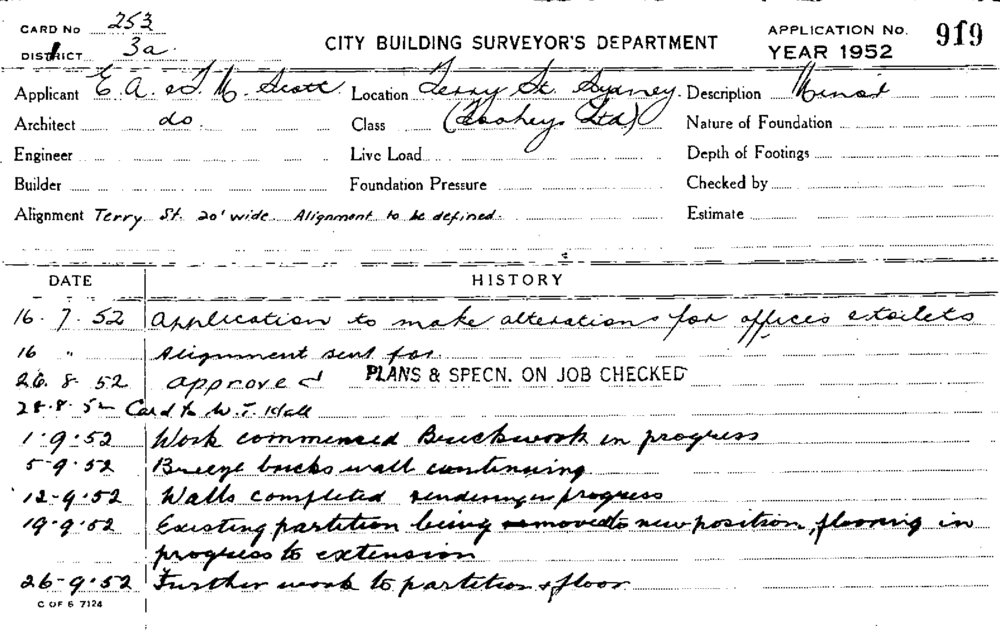 CARD No 253
DISTRICT 3a.
CITY BUILDING SURVEYOR'S DEPARTMENT
APPLICATION No. 919
YEAR 1952
Applicant E. A. & T. M. Scott Location Terry St. Sydney. Description Minor
Architect do. Class (Tooheys Ltd) Nature of Foundation
Engineer Live Load Depth of Footings
Builder Foundation Pressure Checked by
Alignment Terry St. 20' wide. Alignment to be defined. Estimate
DATE HISTORY
16.7.52 Application to make alterations for offices & toilets
16 " Alignment sent for.
26.8.52 approved PLANS & SPECN. ON JOB CHECKED
28.8.52 Card to W. T. Hall
1.9.52 Work commenced Brickwork in progress
5-9.52 Breeze bricks wall continuing
12-9.52 Walls completed rendering in progress
19.9.52 Existing partition being removed to new position, flooring in
progress to extension
26-9.52 Further work to partition & floor
C OF S 7124